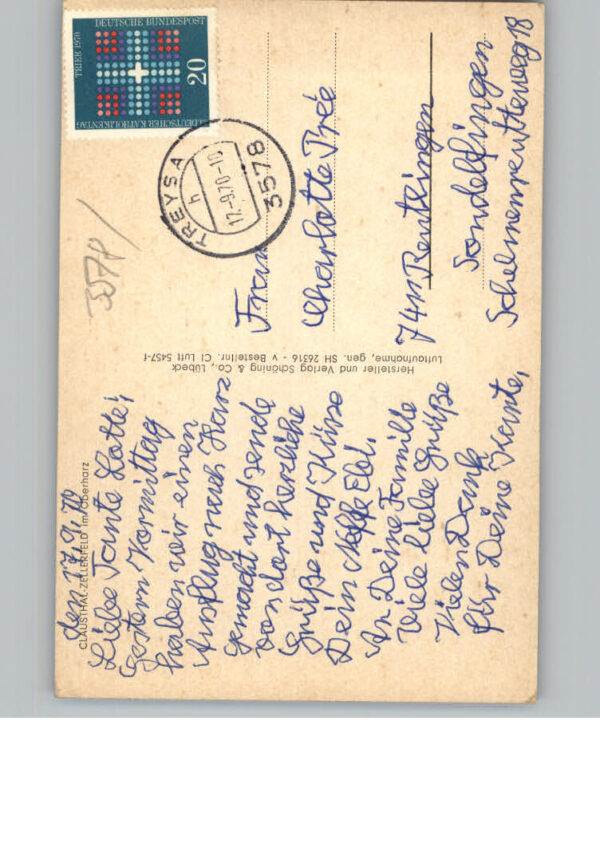 CLAUSTHAL-ZELLERFELD im/Oberharz
den 17.9.70
Liebe Tante Lotte,
Gestern Vormittag
haben wir einen
Ausflug nach Harz
gemacht und sende
von dort herzliche
Grüße und Küsse
Dein Neffe
An Deine Familie
viele liebe Grüße
Vielen Dank
für Deine Karte.
Hersteller und Verlag Schöning & Co., Lübeck
Luftaufnahme, gen. SH 26316 - v Bestellnr. Cl Luft 5457-f
DEUTSCHE BUNDESPOST
TRIER 1970
20
DEUTSCHER KATHOLIKENTAG
TREYSA
h
17.-9.70-10
3578
3578/
Frau
Charlotte Prée
741 Reutlingen
Sondelfingen
Schelmenreutteweg 18